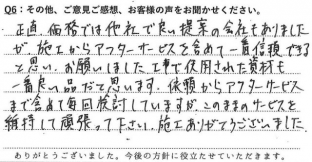 Q6：その他、ご意見ご感想、お客様の声をお聞かせください。
・正直、価格では他社で良い提案の会社もありました
が、施工からアフターサービスを含めて一番信頼できる
と思い、お願いしました。工事で使用された資材も
一番良い品だと思います。依頼からアフターサービス
まで含めて毎回検討していますが、このままのサービスを
維持して頑張って下さい。施工ありがとうございました。
ありがとうございました。今後の方針に役立たせていただきます。